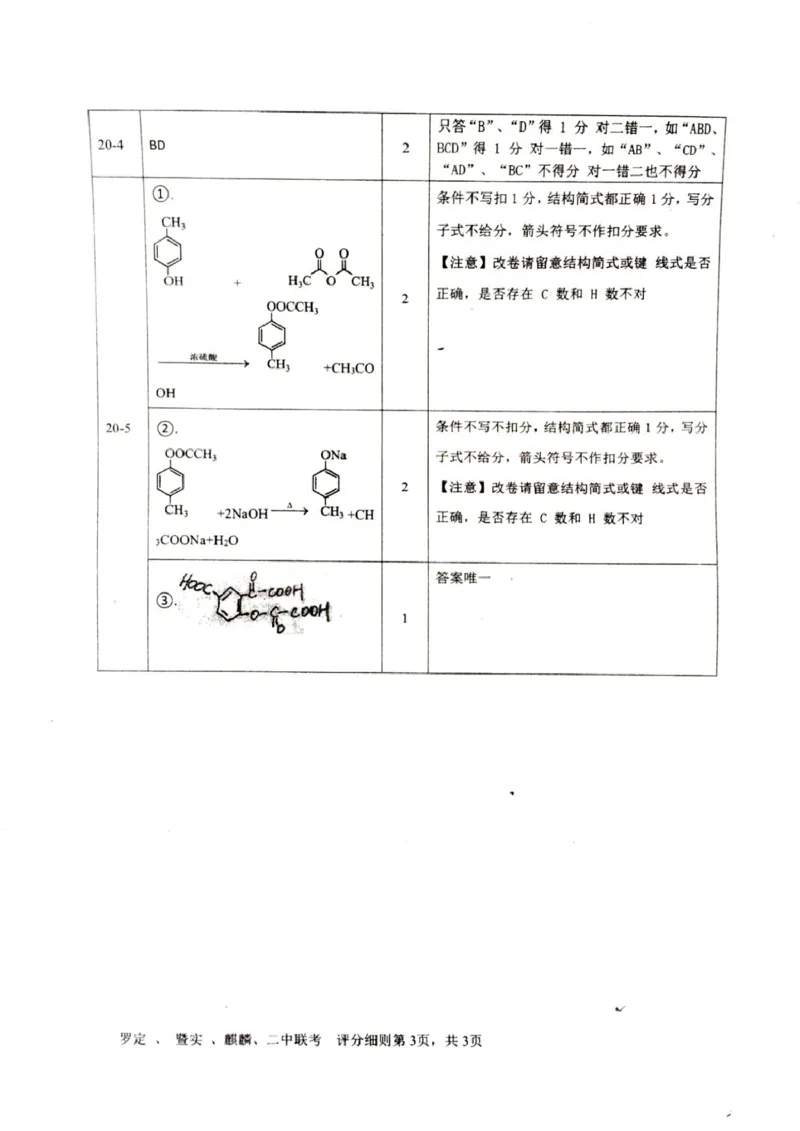 20-4
BD
2
只答“B”、“D”得 1 分 对二错一，如“ABD、
BCD”得 1 分 对一错一，如“AB”、“CD”、
“AD”、“BC”不得分 对一错二也不得分
20-5
①.
CH₃
OH
+
O O
H₃C O CH₃
OOCCH₃
浓硫酸
CH₃
+CH₃CO
OH
2
条件不写扣 1 分，结构简式都正确 1 分，写分
子式不给分，箭头符号不作扣分要求。
【注意】改卷请留意结构简式或键 线式是否
正确，是否存在 C 数和 H 数不对
②.
OOCCH₃
ONa
CH₃
+2NaOH
△
CH₃
+CH
₃COONa+H₂O
2
条件不写不扣分，结构简式都正确 1 分，写分
子式不给分，箭头符号不作扣分要求。
【注意】改卷请留意结构简式或键 线式是否
正确，是否存在 C 数和 H 数不对
③.
HOOC
O
C-COOH
O-C-COOH
O
1
答案唯一
罗定 、 暨实 、麒麟、二中联考 评分细则第 3页，共 3页